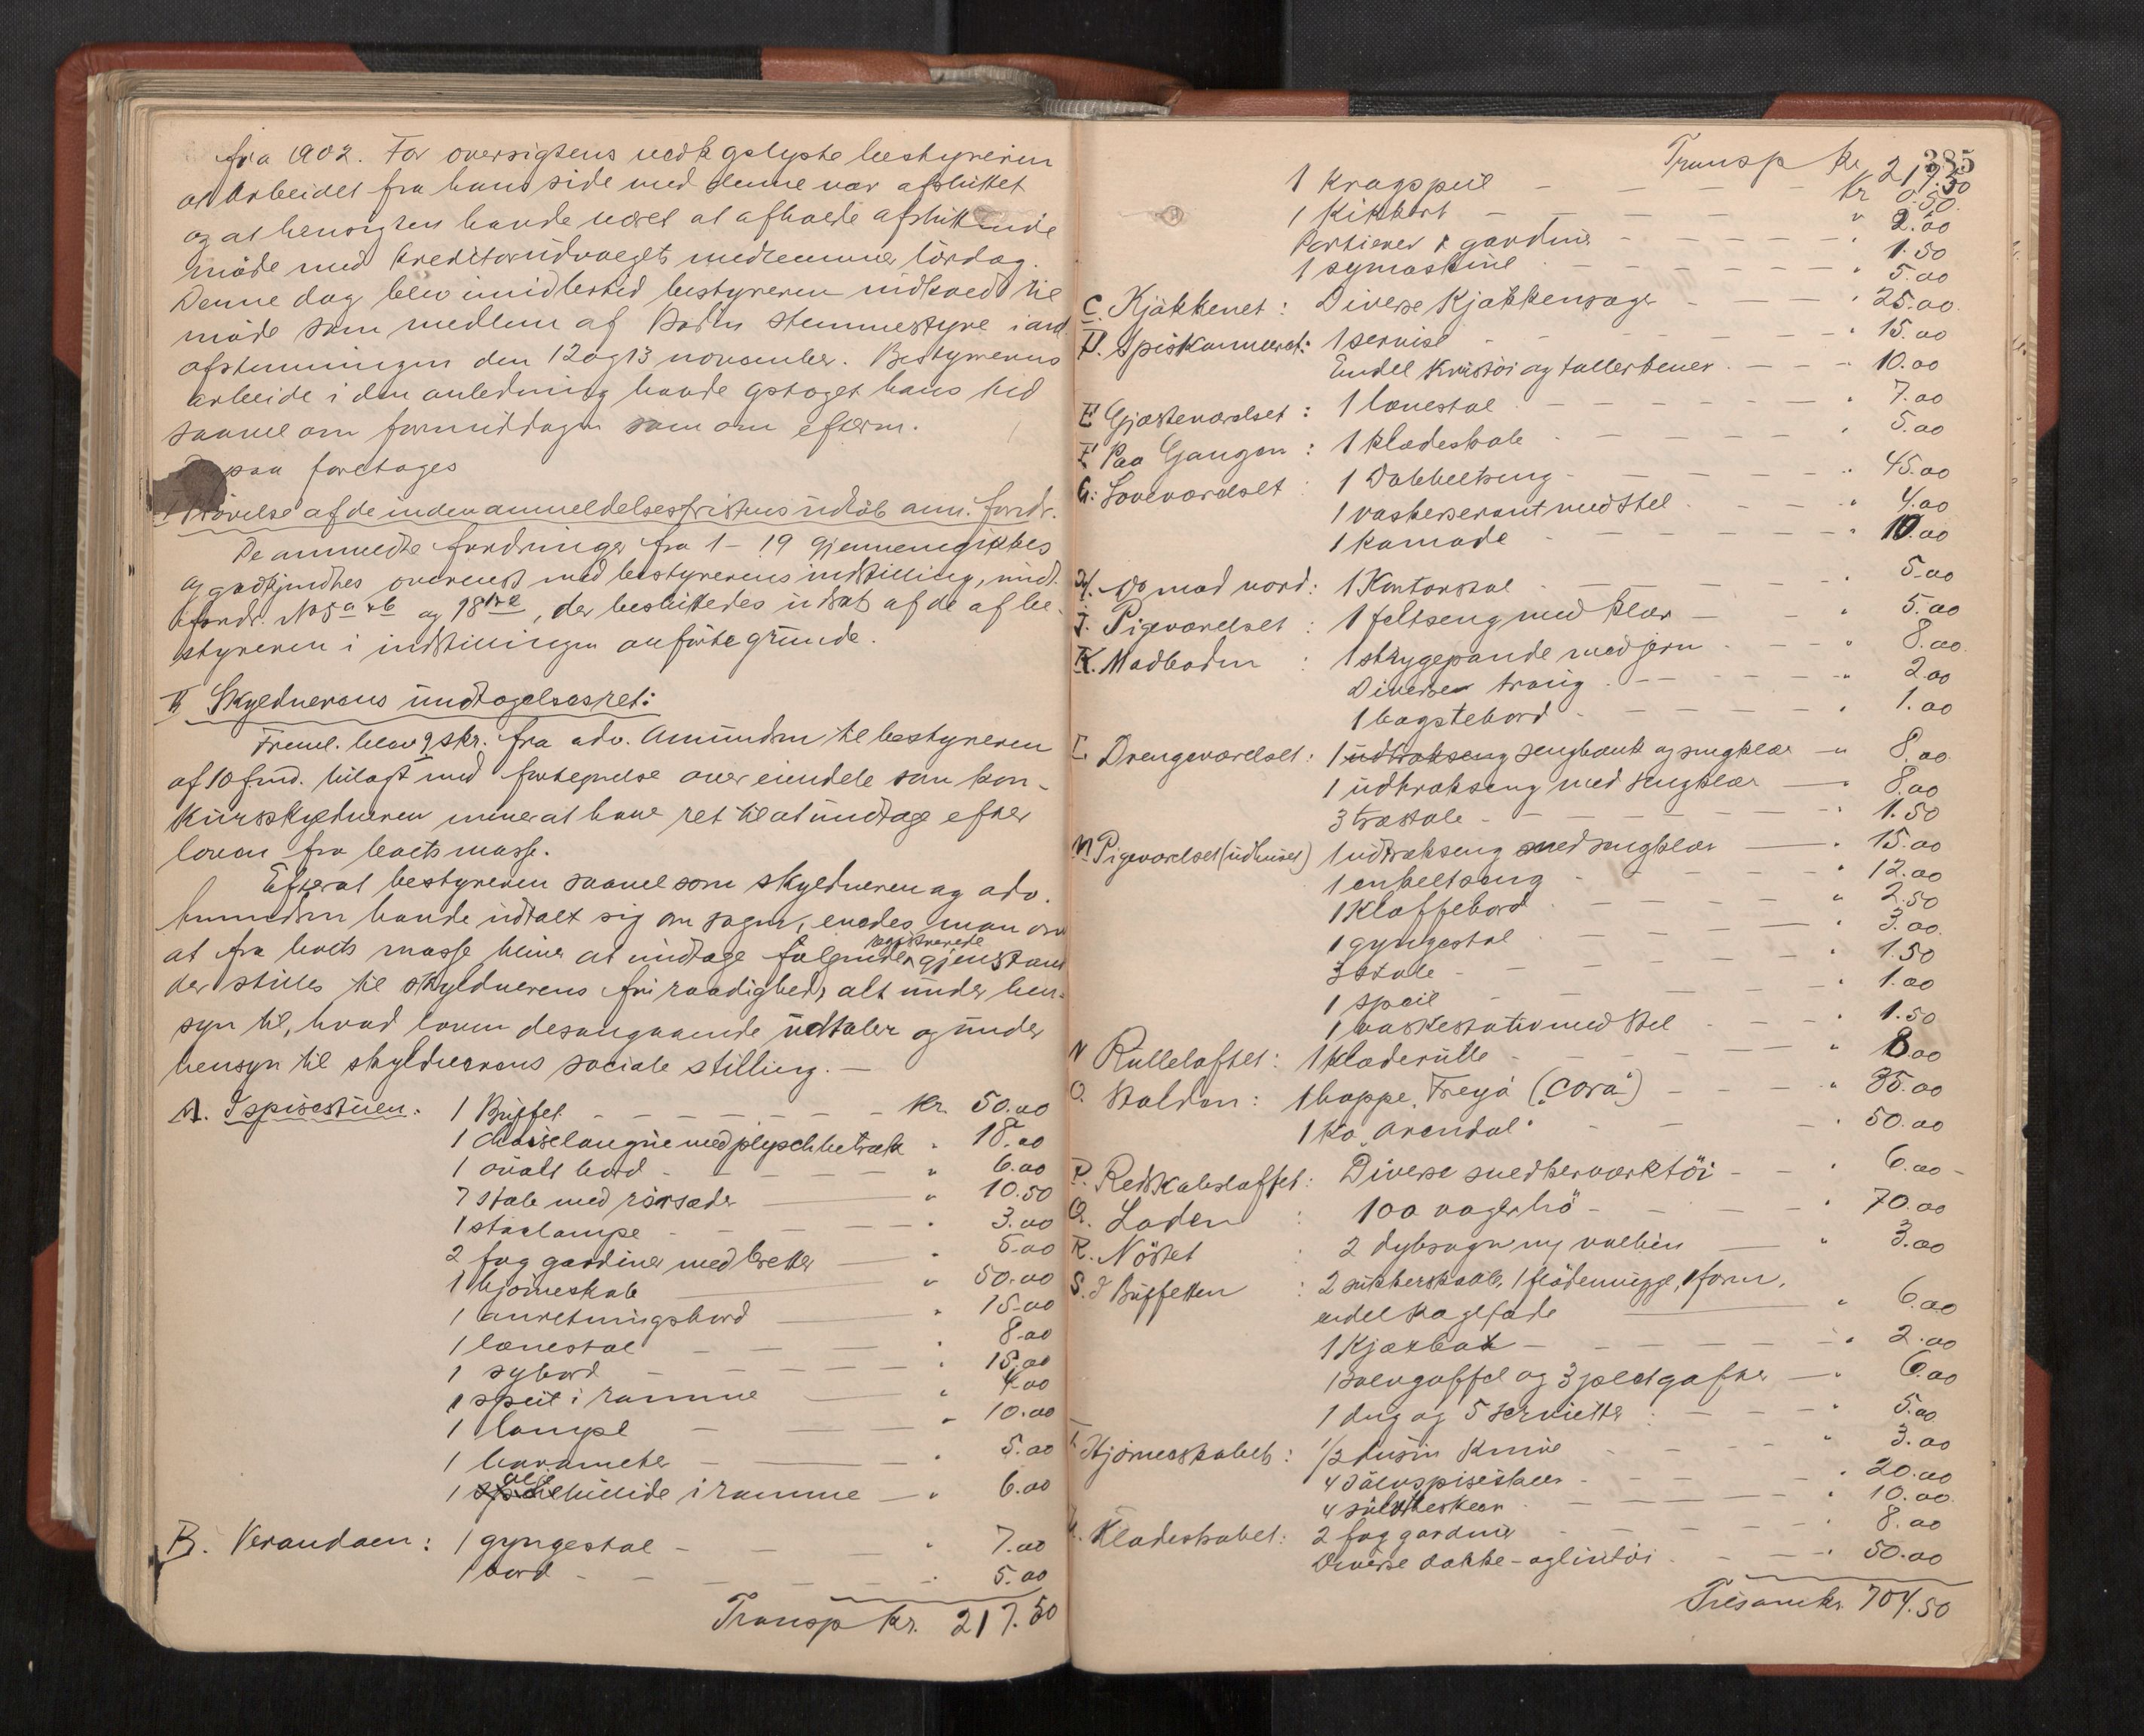 fra 1902. For oversigtens vedk. oplyste bestyreren
at arbeidet fra hans side med denne var afsluttet
og at hensigten havde været at afholde afsluttende
möde med kreditorudvalgets medlemmer lördag.
Denne dag blev imidlertid bestyreren indkaldt til
möde som medlem af Bodin stemmestyre i anl.
afstemningen den 12 og 13 november. Bestyrerens
arbeide i den anledning havde optaget hans tid
saavel om formiddagen som om efterm.
paa foretages
Prövelse af de inden anmeldelsesfristens udlöb anm. fordr.
De anmeldte fordringer fra 1 – 19 gjennemgikkes
og godkjendtes overenst. med bestyrerens indstilling, undt.
fordr. No 5 a & b og 18, der besluttedes udsat af de af be-
styreren i indstillingen anförte grunde.
II Skyldnerens undtagelsesret:
Freml. bilag 9 skr. fra adv. Amundsen til bestyreren
af 10 f.md. bilagt med fortegnelse over eiendele som kon-
kursskyldneren mener at have ret til at undtage efter
loven fra boets masse.
Efterat bestyreren saavel som skyldneren og adv.
Amundsen havde udtalt sig om sagen, enedes man om
at fra boets masse bliver at undtage fölgende registrerede gjenstand
der stilles til skyldnerens fri raadighed, alt under hen-
syn til, hvad loven desangaaende udtaler og under
hensyn til skyldnerens sociale stilling. —
A. I spisestuen: 1 Buffet – – – – kr. 50.00
1 chaiselongue med plyschbetræk " 18.00
1 ovalt bord – – – " 6.00
7 stole med rörsæder — " 10.50
1 staalampe – – – " 3.00
2 fag gardiner med bretter — " 5.00
1 hjörneskab — " 50.00
1 anretningsbord — " 15.00
1 lænestol – – – " 8.00
1 sybord – – – " 15.00
1 speil i ramme — " 4.00
1 lampe – – – " 10.00
1 barometer – – – " 5.00
1 oliebillide i ramme — " 6.00
B. Verandaen: 1 gyngestol – – – " 7.00
1 bord – – – " 5.00
Transp kr. 217.50
385
Transp kr 217.50
1 kragspeil – – – kr 0.50
1 kikkert – – – " 2.00
Portierer & gardiner – – – " 1.50
1 symaskine – – – " 5.00
C. Kjökkenet: Diverse kjökkensager – – " 25.00
D. Spiskammeret: 1 servise – – – " 15.00
Endel kristöi og tallerkener – – " 10.00
E Gjæsteværelset: 1 lænestol – – – " 7.00
F Paa Gangen: 1 klædeskab – – – " 5.00
G. Soveværelset: 1 Dobbeltseng – – – " 45.00
1 vaskeservant med stel – – " 4.00
1 komode – – – " 10.00
H. Do mod nord: 1 Kontorstol – – – " 5.00
J. Pigeværelset: 1 feltseng med klær – – " 5.00
K. Madboden: 1 strygepande med jern – – " 8.00
Diverse traug – – – " 2.00
1 bagstebord – – – " 1.00
L Drengeværelset: 1 udtrækseng sengbænk og sengklær — " 8.00
1 udtrækseng med sengklær — " 8.00
3 træstole – – – " 1.50
M Pigeværelset (udhuset) 1 udtrækseng med sengklær — " 15.00
1 enkeltseng – – – " 12.00
1 klaffebord – – – " 2.50
1 gyngestol – – – " 3.00
3 stole – – – " 1.50
1 speil – – – " 1.00
1 vaskestativ med stel – – " 1.50
N Rulleloftet: 1 klæderulle – – – " 8.00
O. Stalden: 1 hoppe "Freya" ("Cora") – – " 35.00
1 ko "Arendal" – – – " 50.00
P. Redskabsloftet: Diverse snedkerværktöi – – " 6.00
Q. Laden: 100 voger hö – – – " 70.00
R. Nöstet: 2 dybsagn — " 3.00
S. I Buffetten: 2 sukkerskaale, 1 flödemugge, 1 form,
endel kagefade — " 6.00
1 Kjækbox – – – " 2.00
1 og 3 — " 6.00
1 dug og 5 servietter – – " 5.00
T Hjörneskabet: 1/2 dusin knive – – " 3.00
4 sölvspiseskeer – – " 20.00
4 sölvtheskeer – – " 10.00
U. Klædeskabet: 2 fag gardiner – – " 8.00
Diverse dække- og lintöi – – " 50.00
Tilsam kr. 704.50